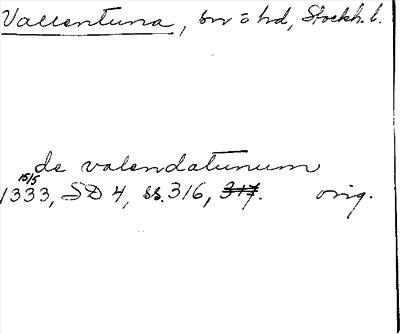 Vallentuna, sn o hd, Stockh. l.
de valendatunum
15/5
1333, SD 4, ss. 316, 317. orig.